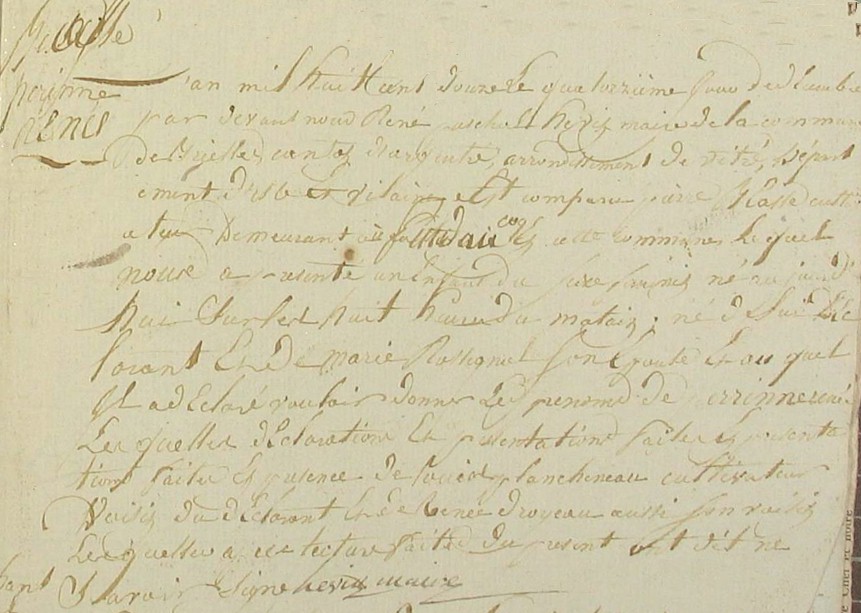 perinne
René
L'an mil huit Cent douze le quatorzieme jour de decembre
par devant nous René paschal hevin maire de la commune
de canton d'argentré, arrondissement de vitré, Départ
ement d'ille et vilaine, Est comparu pierre culti
ateur Demeurant au cette commune, le quel
nous a presenté un Enfant du sexe né au jourd'
hui Sur les huit heures du matain ; né de lui dec
larant Et de marie Rossignol son Epouse Et au quel
Il a déclaré vouloir donner les prenoms de perrinne rené
Les quelles déclarations Et présentations faites Es presenta
tions faites Es presence de plancheneau cultivateur
Voisin du déclarant Et de René droyeau aussi son voisin
Les quelles apres lecture faite du present ont dit ne
Savoir Signe hevin maire